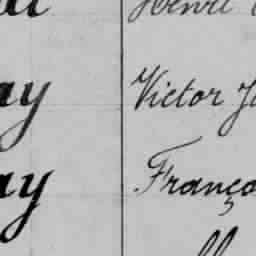 Henri
ay Victor J
ay Franço